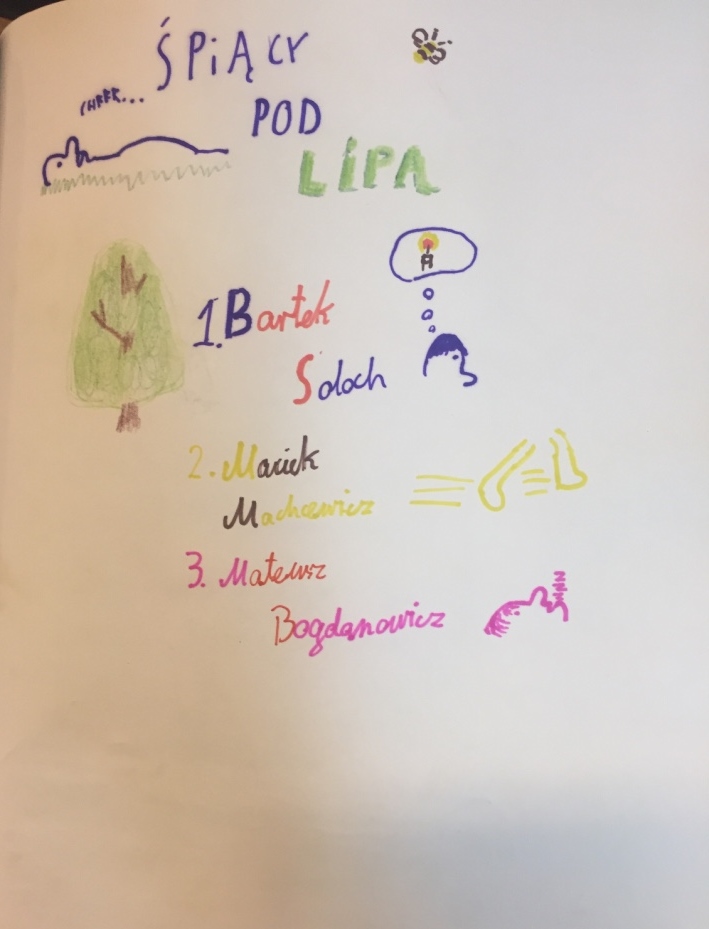 ŚPiĄCY
CHRRR...
POD
LiPA
1. Bartek
Soloch
2. Maciek
Machcewicz
3. Mateusz
Bogdanowicz